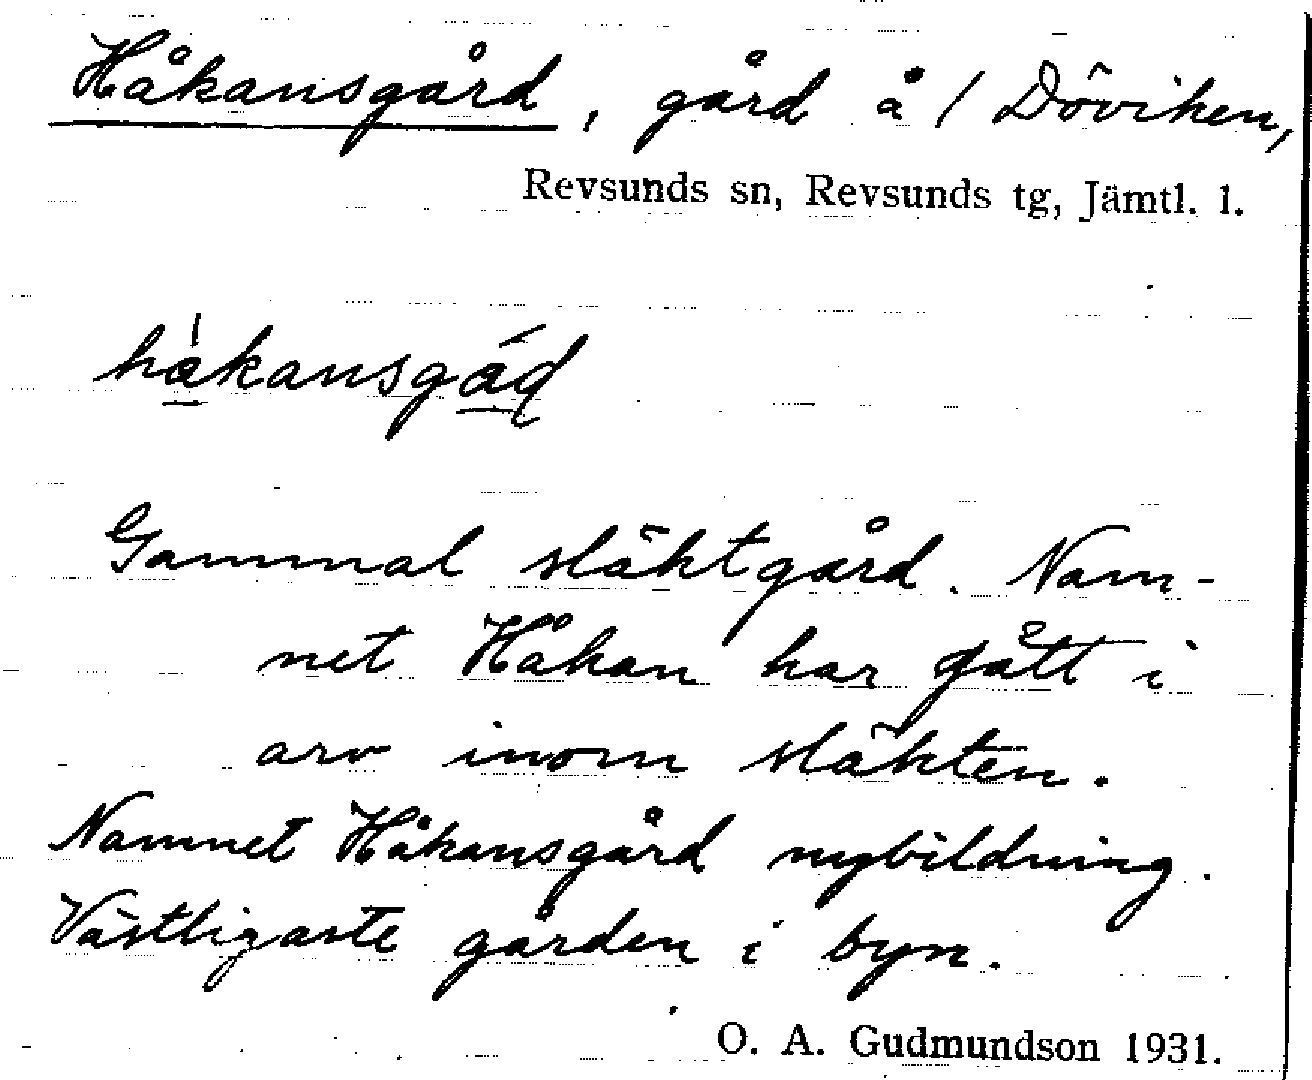 Håkansgård, gård å / Döviken,
Revsunds sn, Revsunds tg, Jämtl. l.
håkansgåɖ
Gammal släktgård. Nam-
net Håkan har gått i
arv inom släkten.
Namnet Håkansgård nybildning.
Västligaste gården i byn.
O. A. Gudmundson 1931.